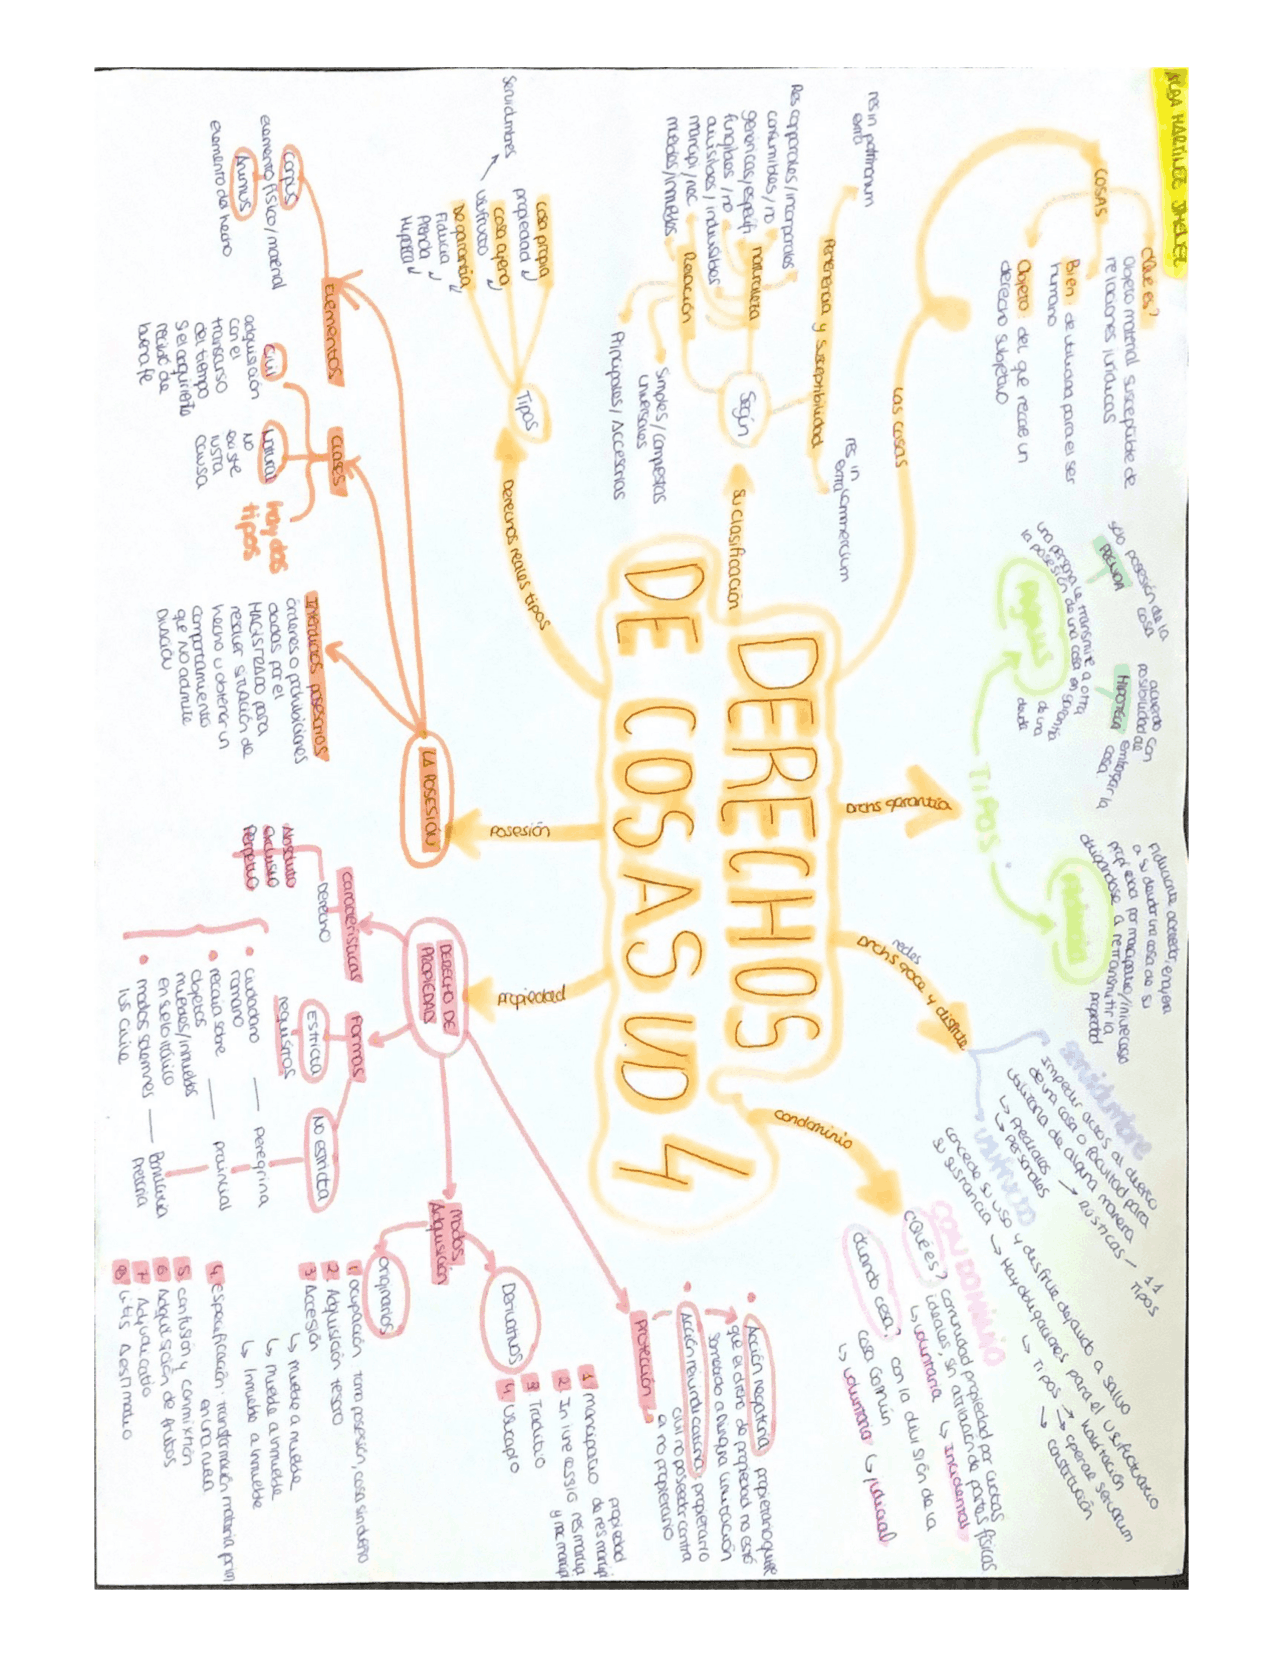 ALBA MARTÍNEZ JIMÉNEZ
DERECHOS
DE COSAS UD 4
Las cosas
COSAS
¿Qué es?
Objeto material susceptible de
relaciones jurídicas
Bien: de utilidad para el ser
humano
Objeto: del que recae un
derecho subjetivo
Su clasificación
Según
Pertenencia y susceptibilidad
res in patrimonium
extra
res in commercium
extra
naturaleza
Res corporales/incorporales
consumibles/no
genéricas/específ
fungibles/no
divisibles/indivisibles
mancipi/nec
muebles/inmuebles
Relación
simples/compuestas
universales
Principales/Accesorias
Derechos reales tipos
Tipos
cosa propia
propiedad
cosa ajena
usufructo
servidumbres
De garantía
Fiducia
Prenda
Hipoteca
Posesión
LA POSESIÓN
Elementos
Corpus
elemento físico/material
Animus
elemento del hecho
Clases
Hay dos
tipos
Civil
adquisición
con el
transcurso
del tiempo
si el adquiriente
recibió de
buena fe
Natural
NO
existe
iusta
causa
Interdictos posesorios
órdenes o prohibiciones
dadas por el
MAGISTRADO para
resolver situación de
hecho u obtener un
comportamiento
que no admite
Dilación
Propiedad
DERECHO DE
PROPIEDAD
características
Derecho
Absoluto
exclusivo
Perpetuo
Formas
Estricta
requisitos
• ciudadano
romano
• recaiga sobre
objetos
muebles/inmuebles
en suelo itálico
• modos solemnes
ius civile
No estricta
Peregrina
provincial
Bonitaria
Pretoria
Modos
Adquisición
originarios
1. ocupación tomo posesión, cosa sin dueño
2. Adquisición tesoro
3. Accesión
↳ mueble a mueble
↳ mueble a inmueble
↳ Inmueble a inmueble
4. especificación: transformación materia prim
en una nueva
5 confusión y conmixtión
6 Adquisición de frutos
7 Adjudicatio
8 Litis Aestimatio
Derivativos
1 mancipatio propiedad
de res mancipi
2. In iure cessio res mancipi
y nec mancipi
3. Traditio
4. usucapio
Protección
• Acción negatoria propietario quiere
que el drcho de propiedad no esté
sometido a ninguna limitación
• Acción reivindicatoria propietario
civil no poseedor contra
a no propietario
Drchs garantía
TIPOS
pignus
una persona le transmite a otra
la posesión de una cosa en garantía
de una
deuda
PRENDA
sólo posesión de la
cosa
HIPOTECA
acuerdo con
posibilidad de
embargar la
cosa
Fiducia
Fiduciante acreedor, enajena
a su deudor una cosa de su
propiedad por mancipatio/in iure cessio
obligándose a retransmitir la
propiedad
Drchs goce y disfrute
reales
servidumbre
impedir actos al dueño
de una cosa o facultad para
utilizarla de alguna manera
↳ Prediales → RÚSTICAS - 11
TIPOS
↳ Personales
usufructo
concede su uso y disfrute dejando a salvo
su sustancia → Hay obligaciones para el usufructuario
↳ TIPOS → habitación
→ operae servorum
→ constitución
Condominio
CONDOMINIO
¿Qué es? comunidad propiedad por cuotas
ideales, sin atribución de partes físicas
↳ voluntaria ↳ Incidental
¿Cuando cesa? con la división de la
cosa común
↳ voluntaria ↳ judicial